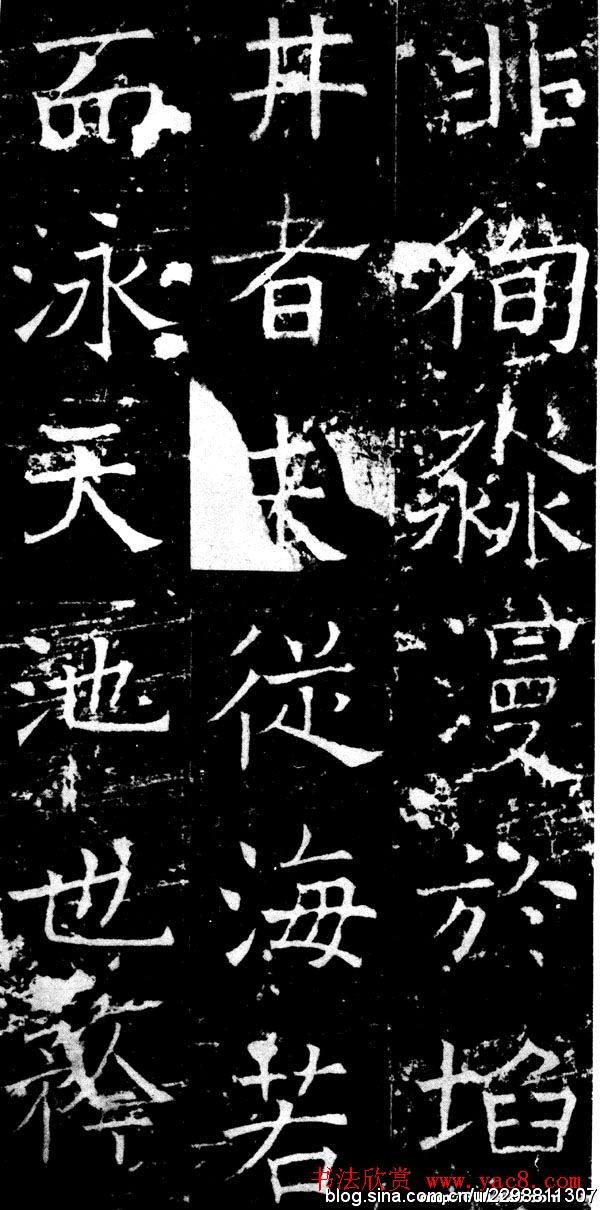 非徇淼漫於埳
井者未從海若
而泳天池也
书法欣赏 www.yac8.com
blog.sina.com.cn/u/2298811307